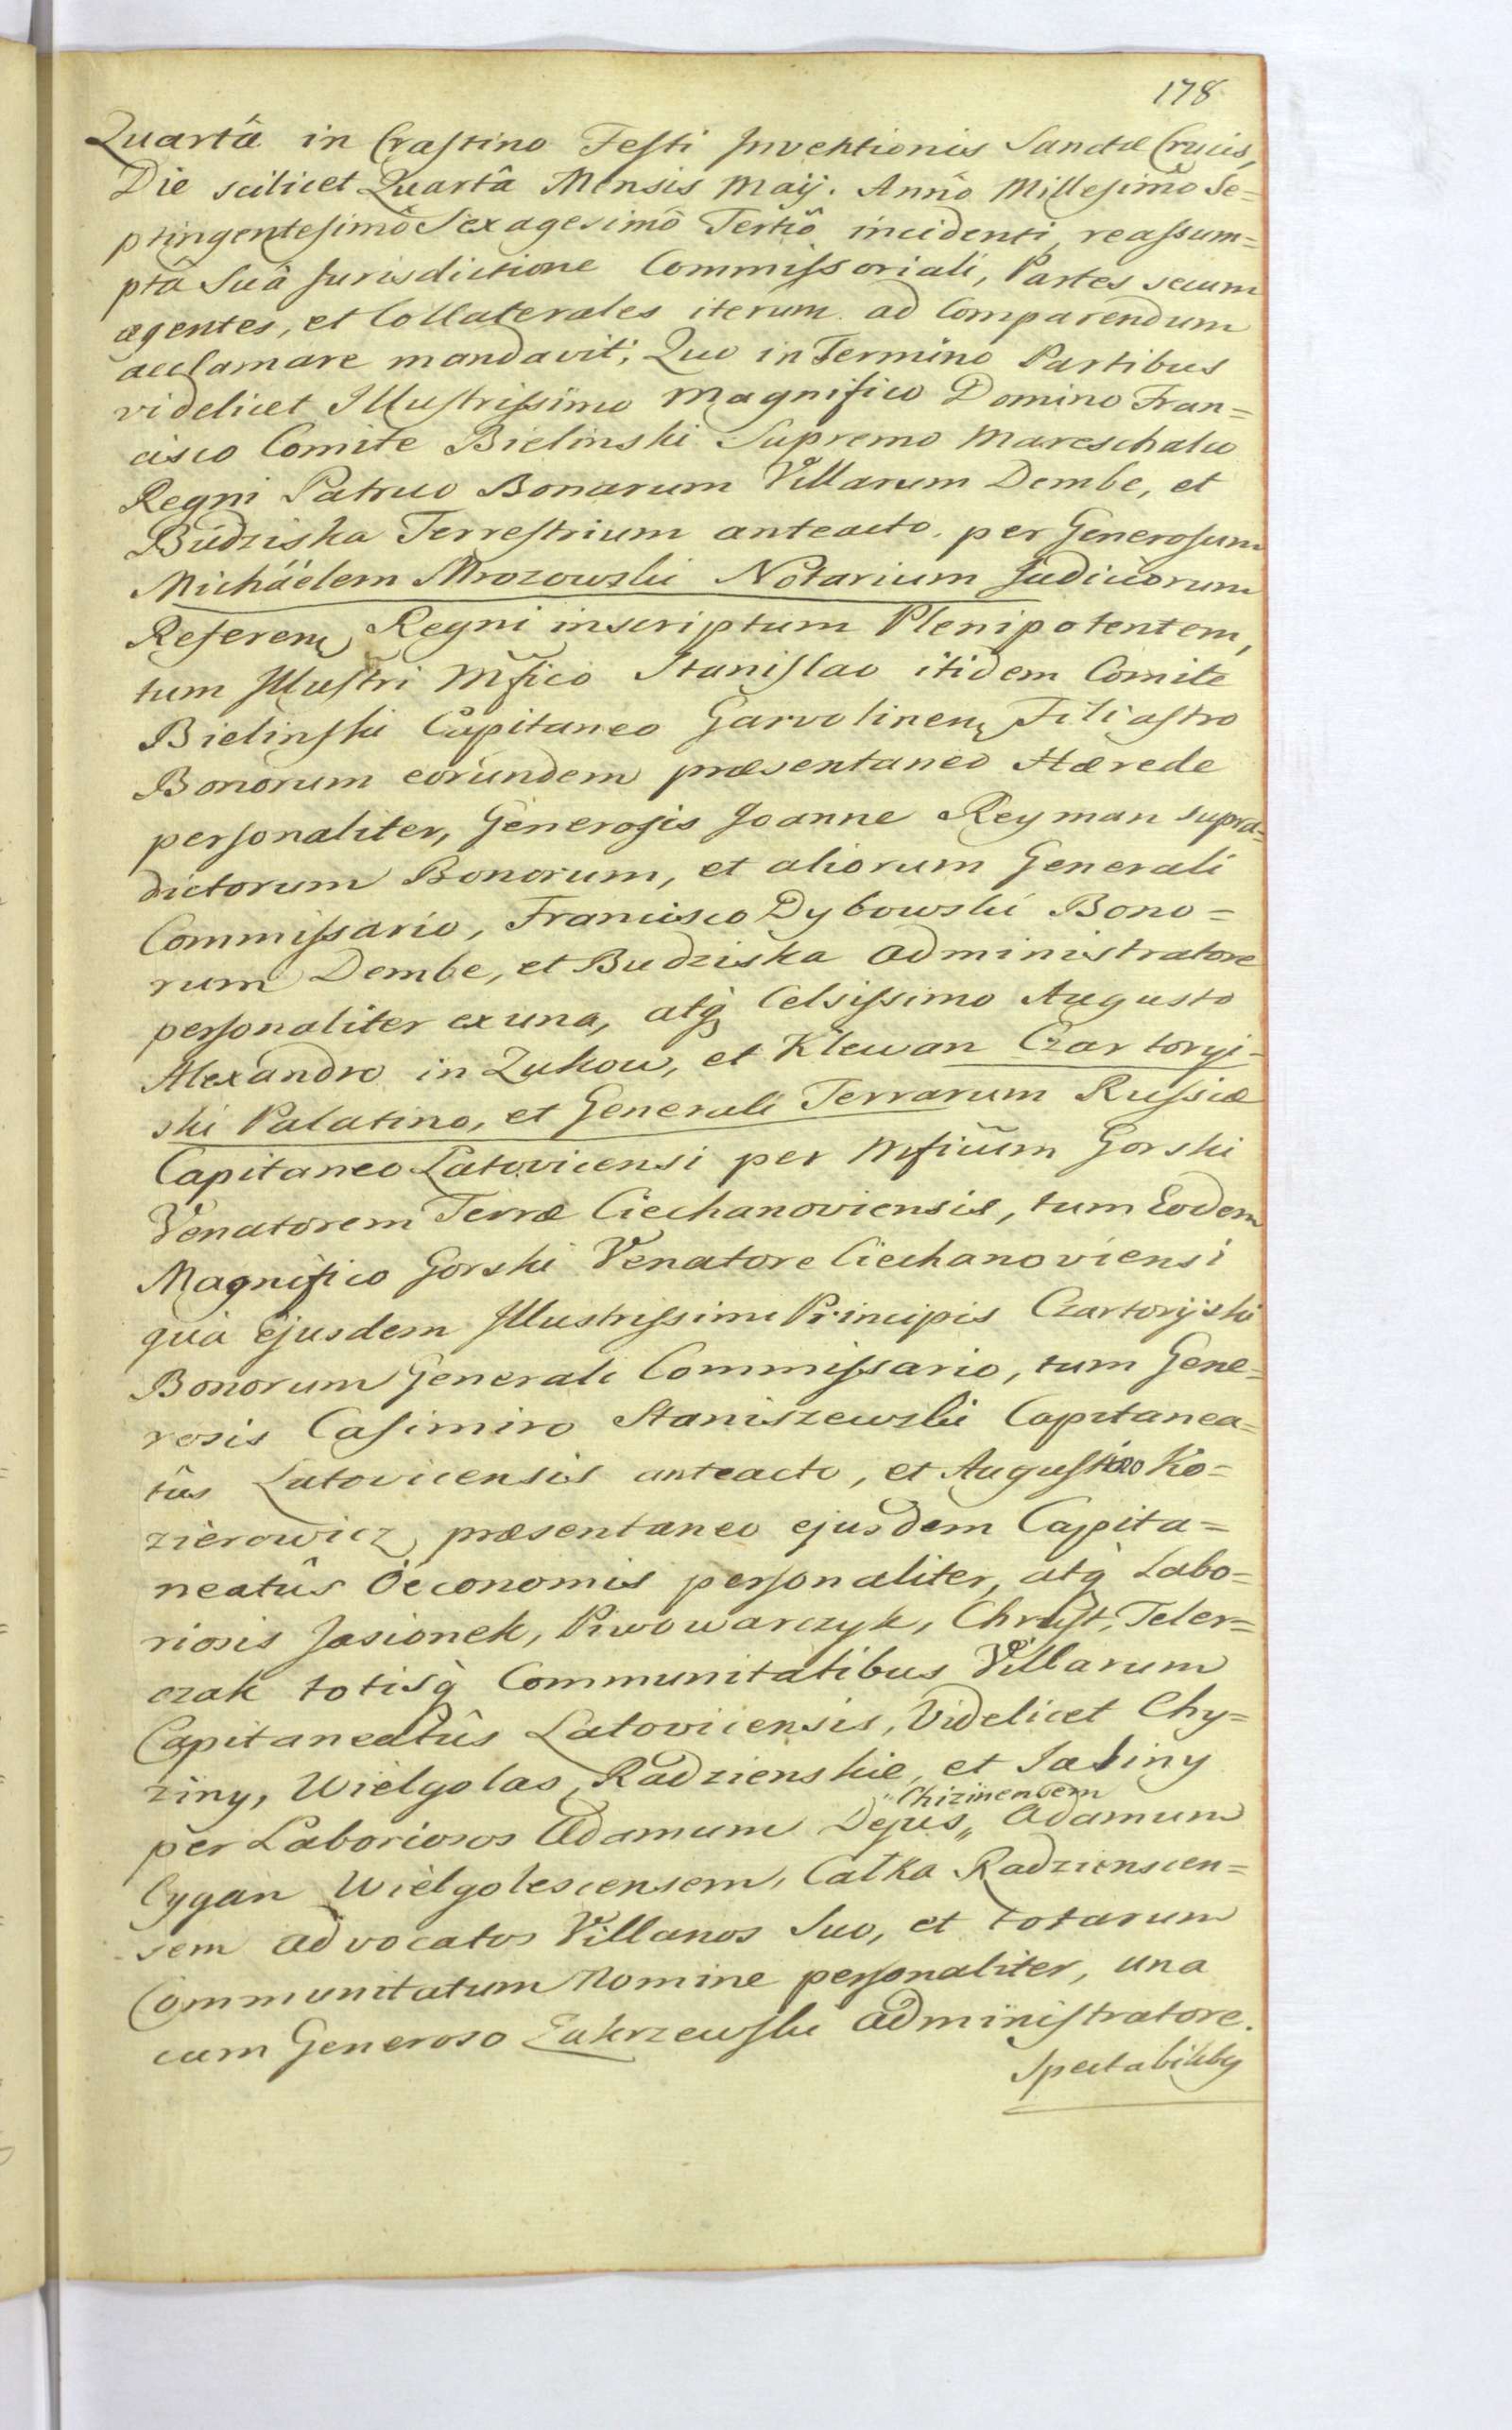 178
Quartâ in Crastino Festi Inventionis Sanctæ Crucis,
Die scilicet Quartâ Mensis Maij. Annô Millesimô Se=
ptingentesimô Sexagesimô Tertiô incidenti, reassum=
ptâ Suâ Jurisdictione Commissoriali, Partes secum
agentes, et Collaterales iterum ad Comparendum
acclamare mandavit; Quo in Termino Partibus
videlicet Illustrissimo Magnifico Domino Fran=
cisco Comite Bielinski Supremo Mareschalco
Regni Patruo Bonarum Villarum Dembe, et
Budziska Terrestrium anteacto, per Generosum
Michäelem Mrozowski Notarium Judiciorum
Referen, Regni inscriptum Plenipotentem,
tum Illustri Mfico Stanislao itidem Comite
Bielinski Capitaneo Garvolinen, Filiastro
Bonorum eorundem præsentaneo Hærede
personaliter, Generosis Joanne Reyman supra=
dictorum Bonorum, et aliorum Generali
Commissario, Francisco Dybowski Bono=
rum Dembe, et Budziska Administratore
personaliter ex una, atq Celsissimo Augusto
Alexandro in Zukow, et Klewan Czartoryi=
ski Palatino, et Generali Terrarum Russiæ
Capitaneo Latovicensi per Mficum Gorski
Venatorem Terræ Ciechanoviensis, tum Eodem
Magnifico Gorski Venatore Ciechanoviensi
quà Ejusdem Illustrissimi Principis Czartoryiski
Bonorum Generali Commissario, tum Gene=
rosis Casimiro Staniszewski Capitanea=
tûs Latovicensis anteacto, et Augustino Ko=
zierowicz præsentaneo ejusdem Capita=
neatûs Oeconomis personaliter, atq Labo=
riosis Jasionek, Piwowarczyk, Chrust, Teler=
czak totisq Communitatibus Villarum
Capitaneatûs Latovicensis, Videlicet Chy=
ziny, Wielgolas, Radzienskie, et Jaliny
per Laboriosos Adamum Dejus „ Chizinensem Adamum
Cygan Wielgolescensem, Całka Radziensцen=
sem advocatos Villanos Suo, et totarum
Communitatum Nomine personaliter, una
cum Generoso Zakrzewski Administratore.
Spectabilibq